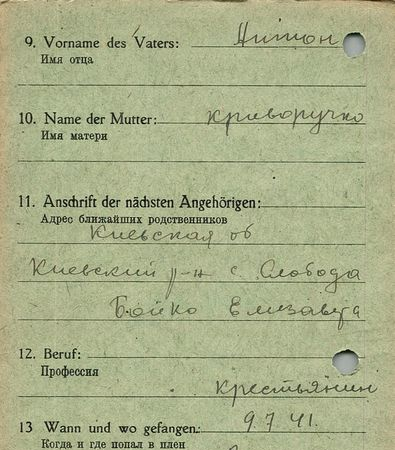 9. Vorname des Vaters: Антон
Имя отца
10. Name der Mutter: Криворучко
Имя матери
11. Anschrift der nächsten Angehörigen:
Адрес ближайших родственников
Киевская об
Киевский р-н с. Слобода
Бойко Елизавета
12. Beruf:
Профессия
крестьянин
13 Wann und wo gefangen: 9.7.41.
Когда и где попал в плен